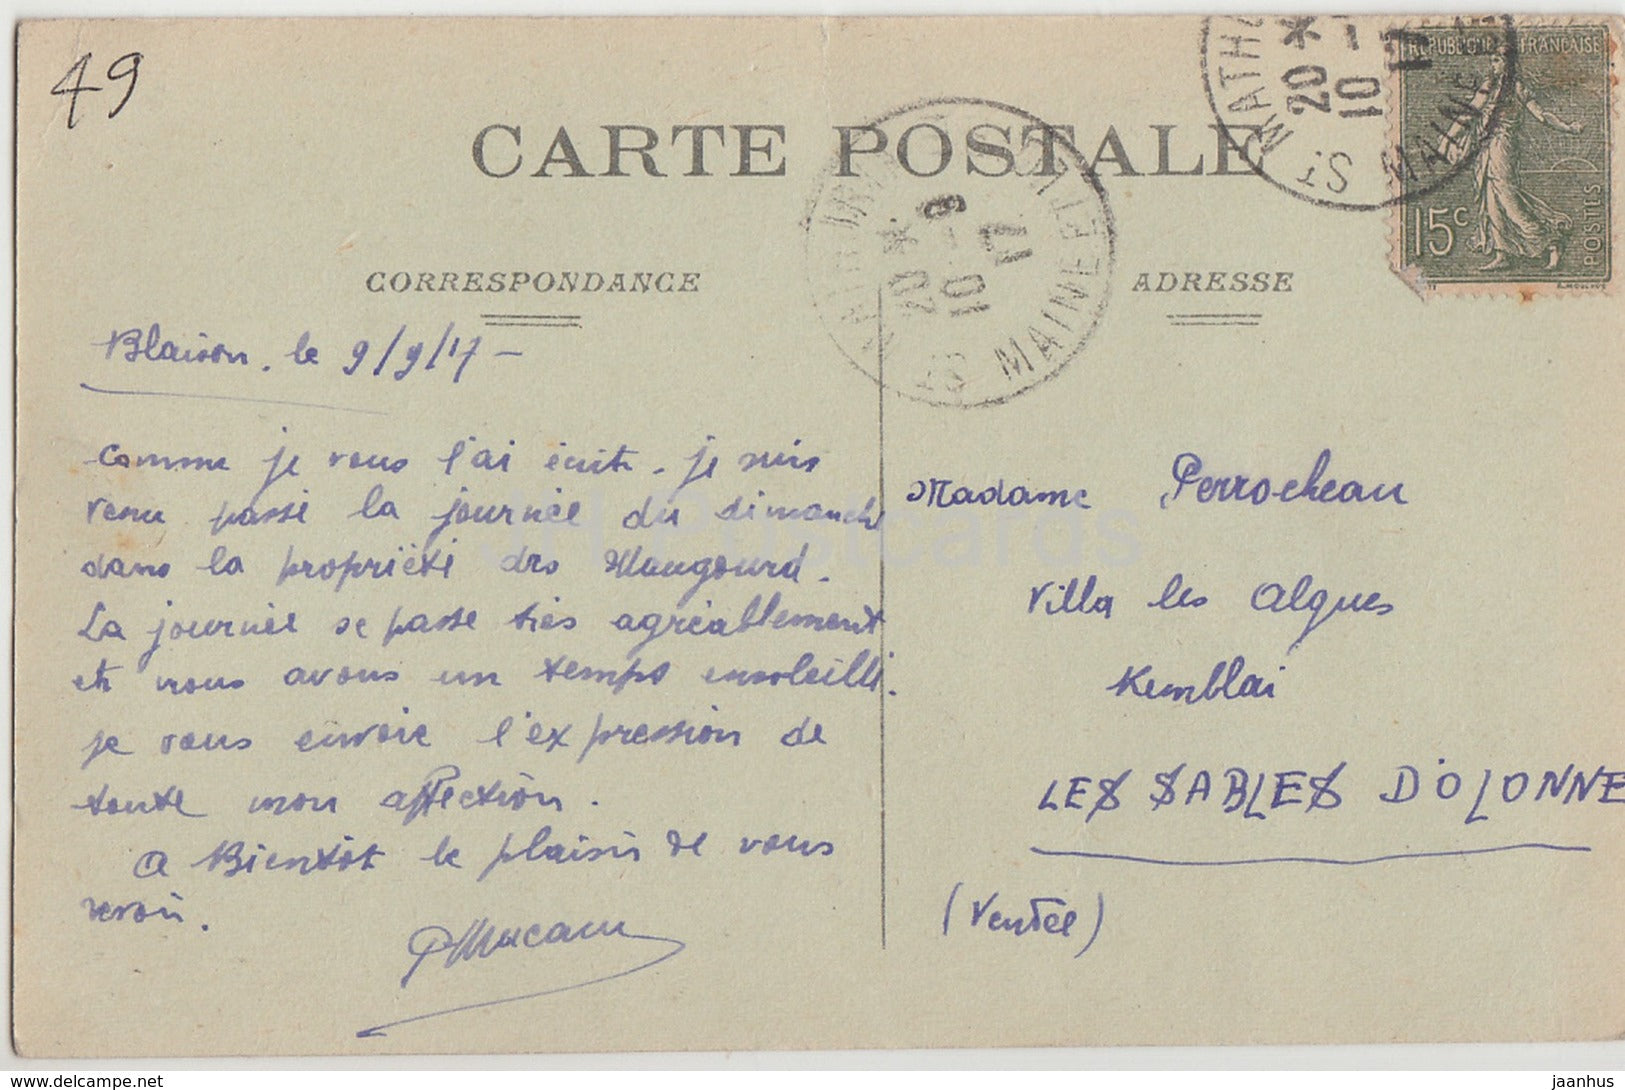 49
CARTE POSTALE
CORRESPONDANCE
ADRESSE
REPUBLIQUE FRANÇAISE
15c
POSTES
MATH
20 * 10 - 17
IS MAINE
20 * -9 10 17
IS MAINE ET L
Blaison, le 9/9/17 -
Comme je vous l'ai écrit. je suis
venu passé la journée du dimanche
dans la propriété des Maugourd.
La journée se passe très agréablement
et nous avons un temps ensoleillé.
je vous envoie l'expression de
toute mon affection.
A Bientôt le plaisir de vous
revoir.
Madame Perrocheau
Villa les Algues
Kemblai
LES SABLES D'OLONNE
(Vendée)
JH Postcards
jaanhus @ delcampe.net